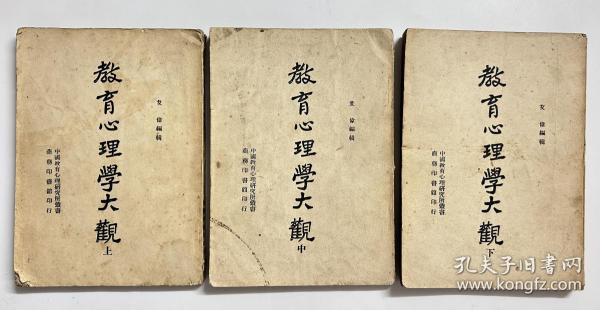 艾偉編輯
教育心理學大觀
上
中國教育心理研究所叢書
商務印書館印行
艾偉編輯
教育心理學大觀
中
中國教育心理研究所叢書
商務印書館印行
艾偉編輯
教育心理學大觀
下
中國教育心理研究所叢書
商務印書館印行
孔夫子旧书网
www.kongfz.com